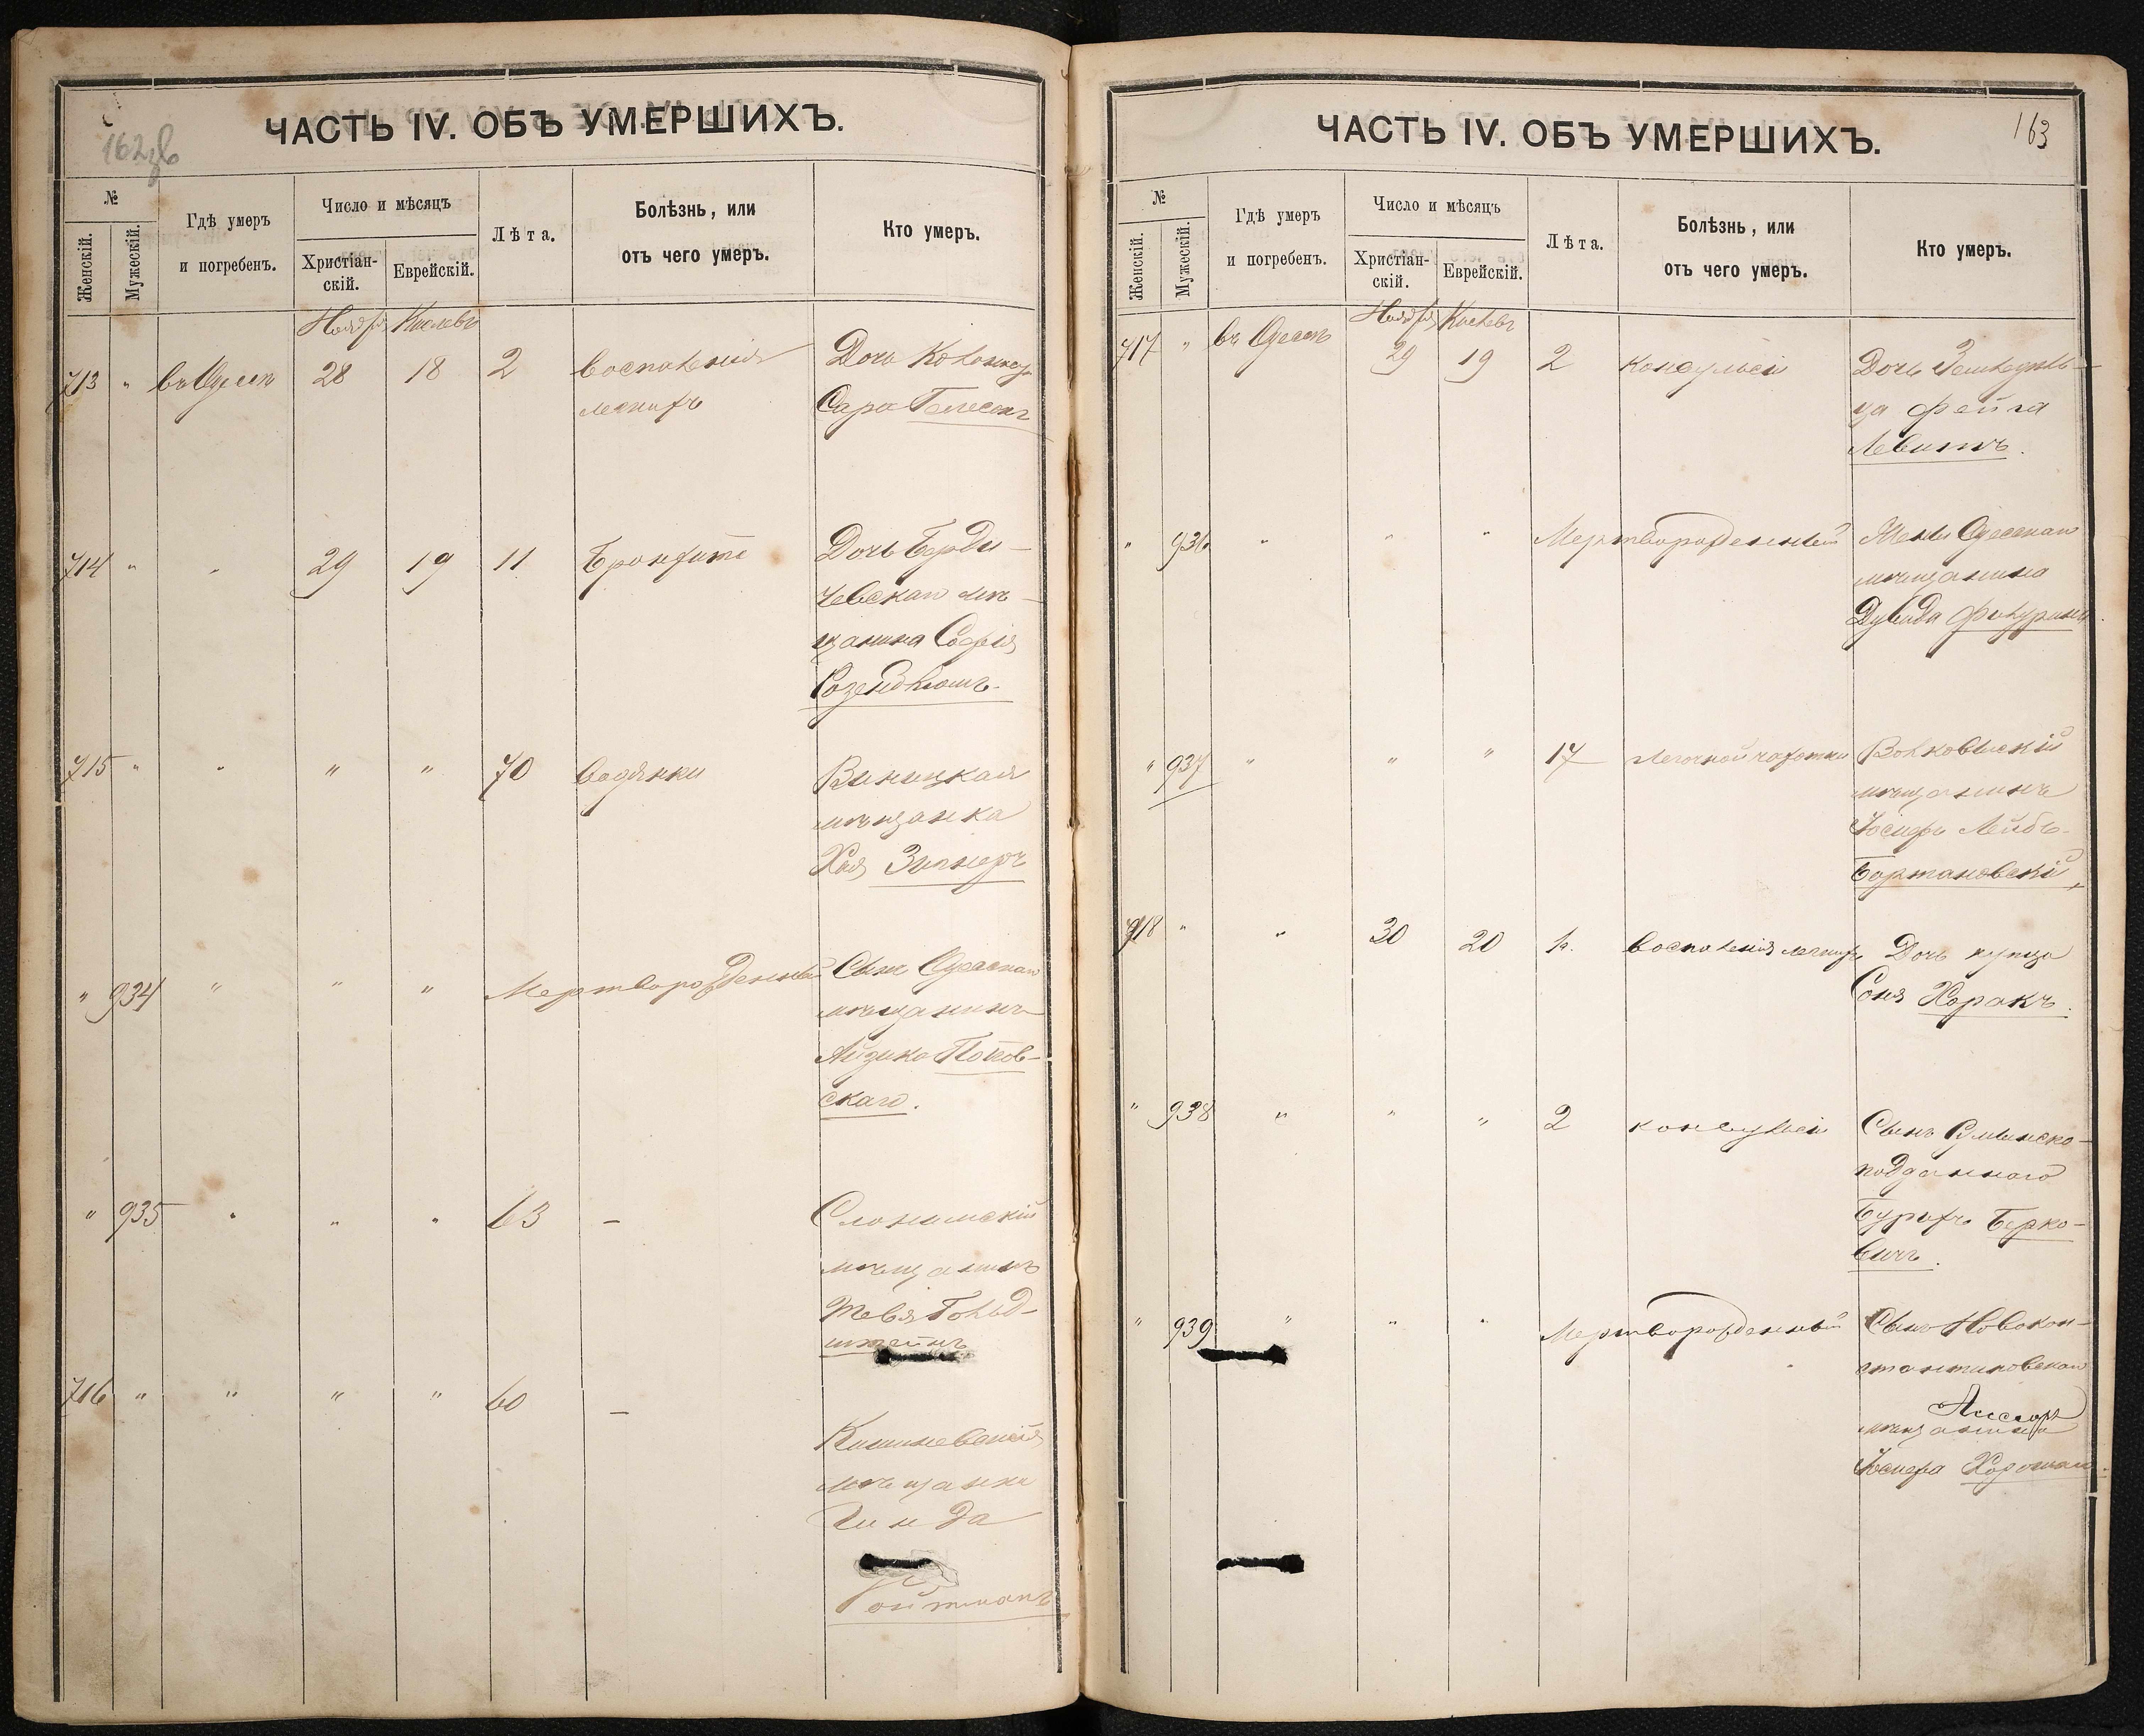 162 зв
ЧАСТЬ IV. ОБЪ УМЕРШИХЪ.
№
Женскій.
Мужескій.
Гдѣ умеръ
и погребенъ.
Число и мѣсяцъ
Христіан-
скій.
Еврейскій.
Лѣта.
Болѣзнь, или
отъ чего умеръ.
Кто умеръ.
Ноября Кислевъ
713 " въ Одессѣ 28 18 2 воспаленія Дочь
легкихъ Сара
714 " " 29 19 11 Бронхитъ Дочь Берди-
чевскаго мѣ-
щанина Софія
Розенблюмъ.
715 " " " " 70 водянки Виницкая
мѣщанка
Хая
" 934 " " " Мертворожденный Сынъ Одесскаго
мѣщанина
Айзика
скаго.
" 935 " " " 63 – Слонимскій
мѣщанинъ
Тевя Гольд-
штейнъ
716 " " " " 60 – Кишиневская
мѣщанка
Гинда
Ройтманъ
163
ЧАСТЬ IV. ОБЪ УМЕРШИХЪ.
№
Женскій.
Мужескій.
Гдѣ умеръ
и погребенъ.
Число и мѣсяцъ
Христіан-
скій.
Еврейскій.
Лѣта.
Болѣзнь, или
отъ чего умеръ.
Кто умеръ.
Ноября Кислевъ
717 " въ Одессѣ 29 19 2 конвульсіи Дочь Земледѣль-
ца Фейга
Левитъ.
" 936 " " " Мертворожденный Жены Одесскаго
мѣщанина
Дувида
" 937 " " " 17 легочной чахотки Волковискій
мѣщанинъ
Іосифъ Лейбъ
Бартановскій
718 " " 30 20 1 воспаленія легкихъ Дочь купца
Соня Харакъ.
" 938 " " " 2 конвульсіи Сынъ Румынско-
подданнаго
Бурихъ Берко-
вичъ.
" 939 " " " Мертворожденный Сынъ Новокон-
стантиновскаго
мѣщанина
Іосифа